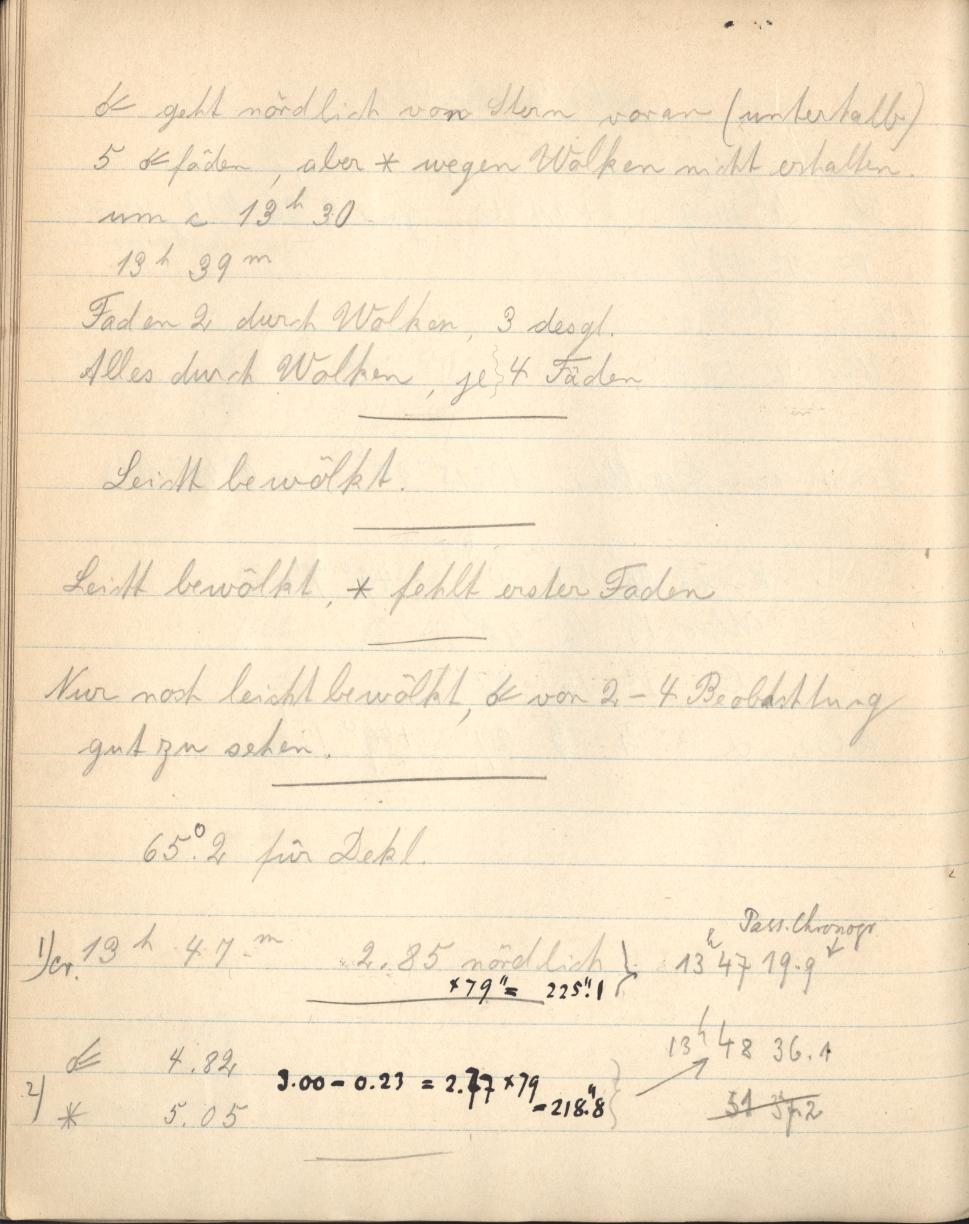 ☄ geht nördlich vom Stern voran (unterhalb)
5 ☄fäden, aber * wegen Wolken nicht erhalten.
um c 13 h 30
13 h 39 m
Faden 2 durch Wolken, 3 desgl.
Alles durch Wolken, je 4 Fäden
Leicht bewölkt.
Leicht bewölkt, * fehlt erster Faden
Nur noch leicht bewölkt, ☄ von 2 – 4 Beobachtung
gut zu sehen.
65°.2 für Dekl.
Pass. Chronogr.
1) cr. 13 h 47 m 2.85 nördlich } 13 h 47 19.9
×79" = 225".1
13 h 48 36.1
☄ 4.82
2) 3.00 – 0.23 = 2.77 × 79
= 218".8
* 5.05 51 37.2